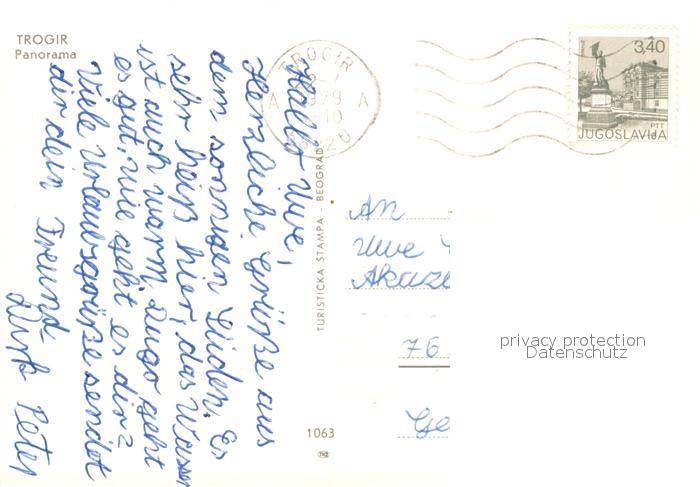 TROGIR
Panorama
Hallo Uwe,
Herzliche Grüße aus
dem sonnigen Süden. Es
sehr heiß hier, das Wasser
ist auch warm. Hugo geht
es gut, wie geht es dir?
Viele Urlaubsgrüße sendet
dir dein Freund
Peter
TURISTIČKA ŠTAMPA - BEOGRAD
1063
TROGIR
1979
A A
3,40
PTT
JUGOSLAVIJA
An
Uwe
76
privacy protection
Datenschutz